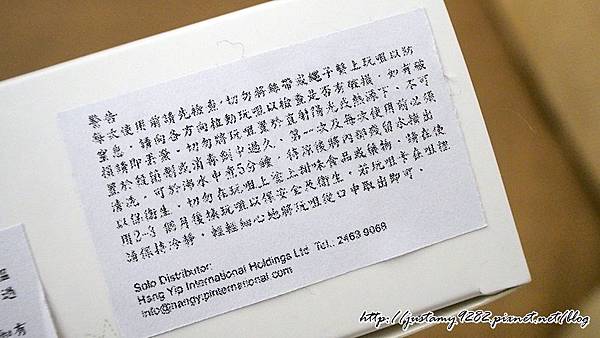 警告
每次使用前請先檢查,切勿將絲帶或繩子繫上玩咀以防
窒息,請向各方向拉動玩咀以檢查是否有破損,如有破
損請即丟棄,切勿將玩咀置於直射陽光或熱源下,不可
置於殺菌劑或消毒劑中過久,第一次及每次使用前必須
清洗,可於沸水中煮5分鐘,待涼後將內部殘留水擠出
以保衛生,切勿在玩咀上塗上甜味食品或藥物,請在使
用2-3個月後換玩咀以保安全及衛生,若玩咀卡在咀裡
請保持冷靜,輕輕細心地將玩咀從口中取出即可。
Sole Distributor:
Hang Yip International Holdings Ltd Tel.: 2463 9068
info@hangyipinternational.com
http://justamy9282.pixnet.net/blog